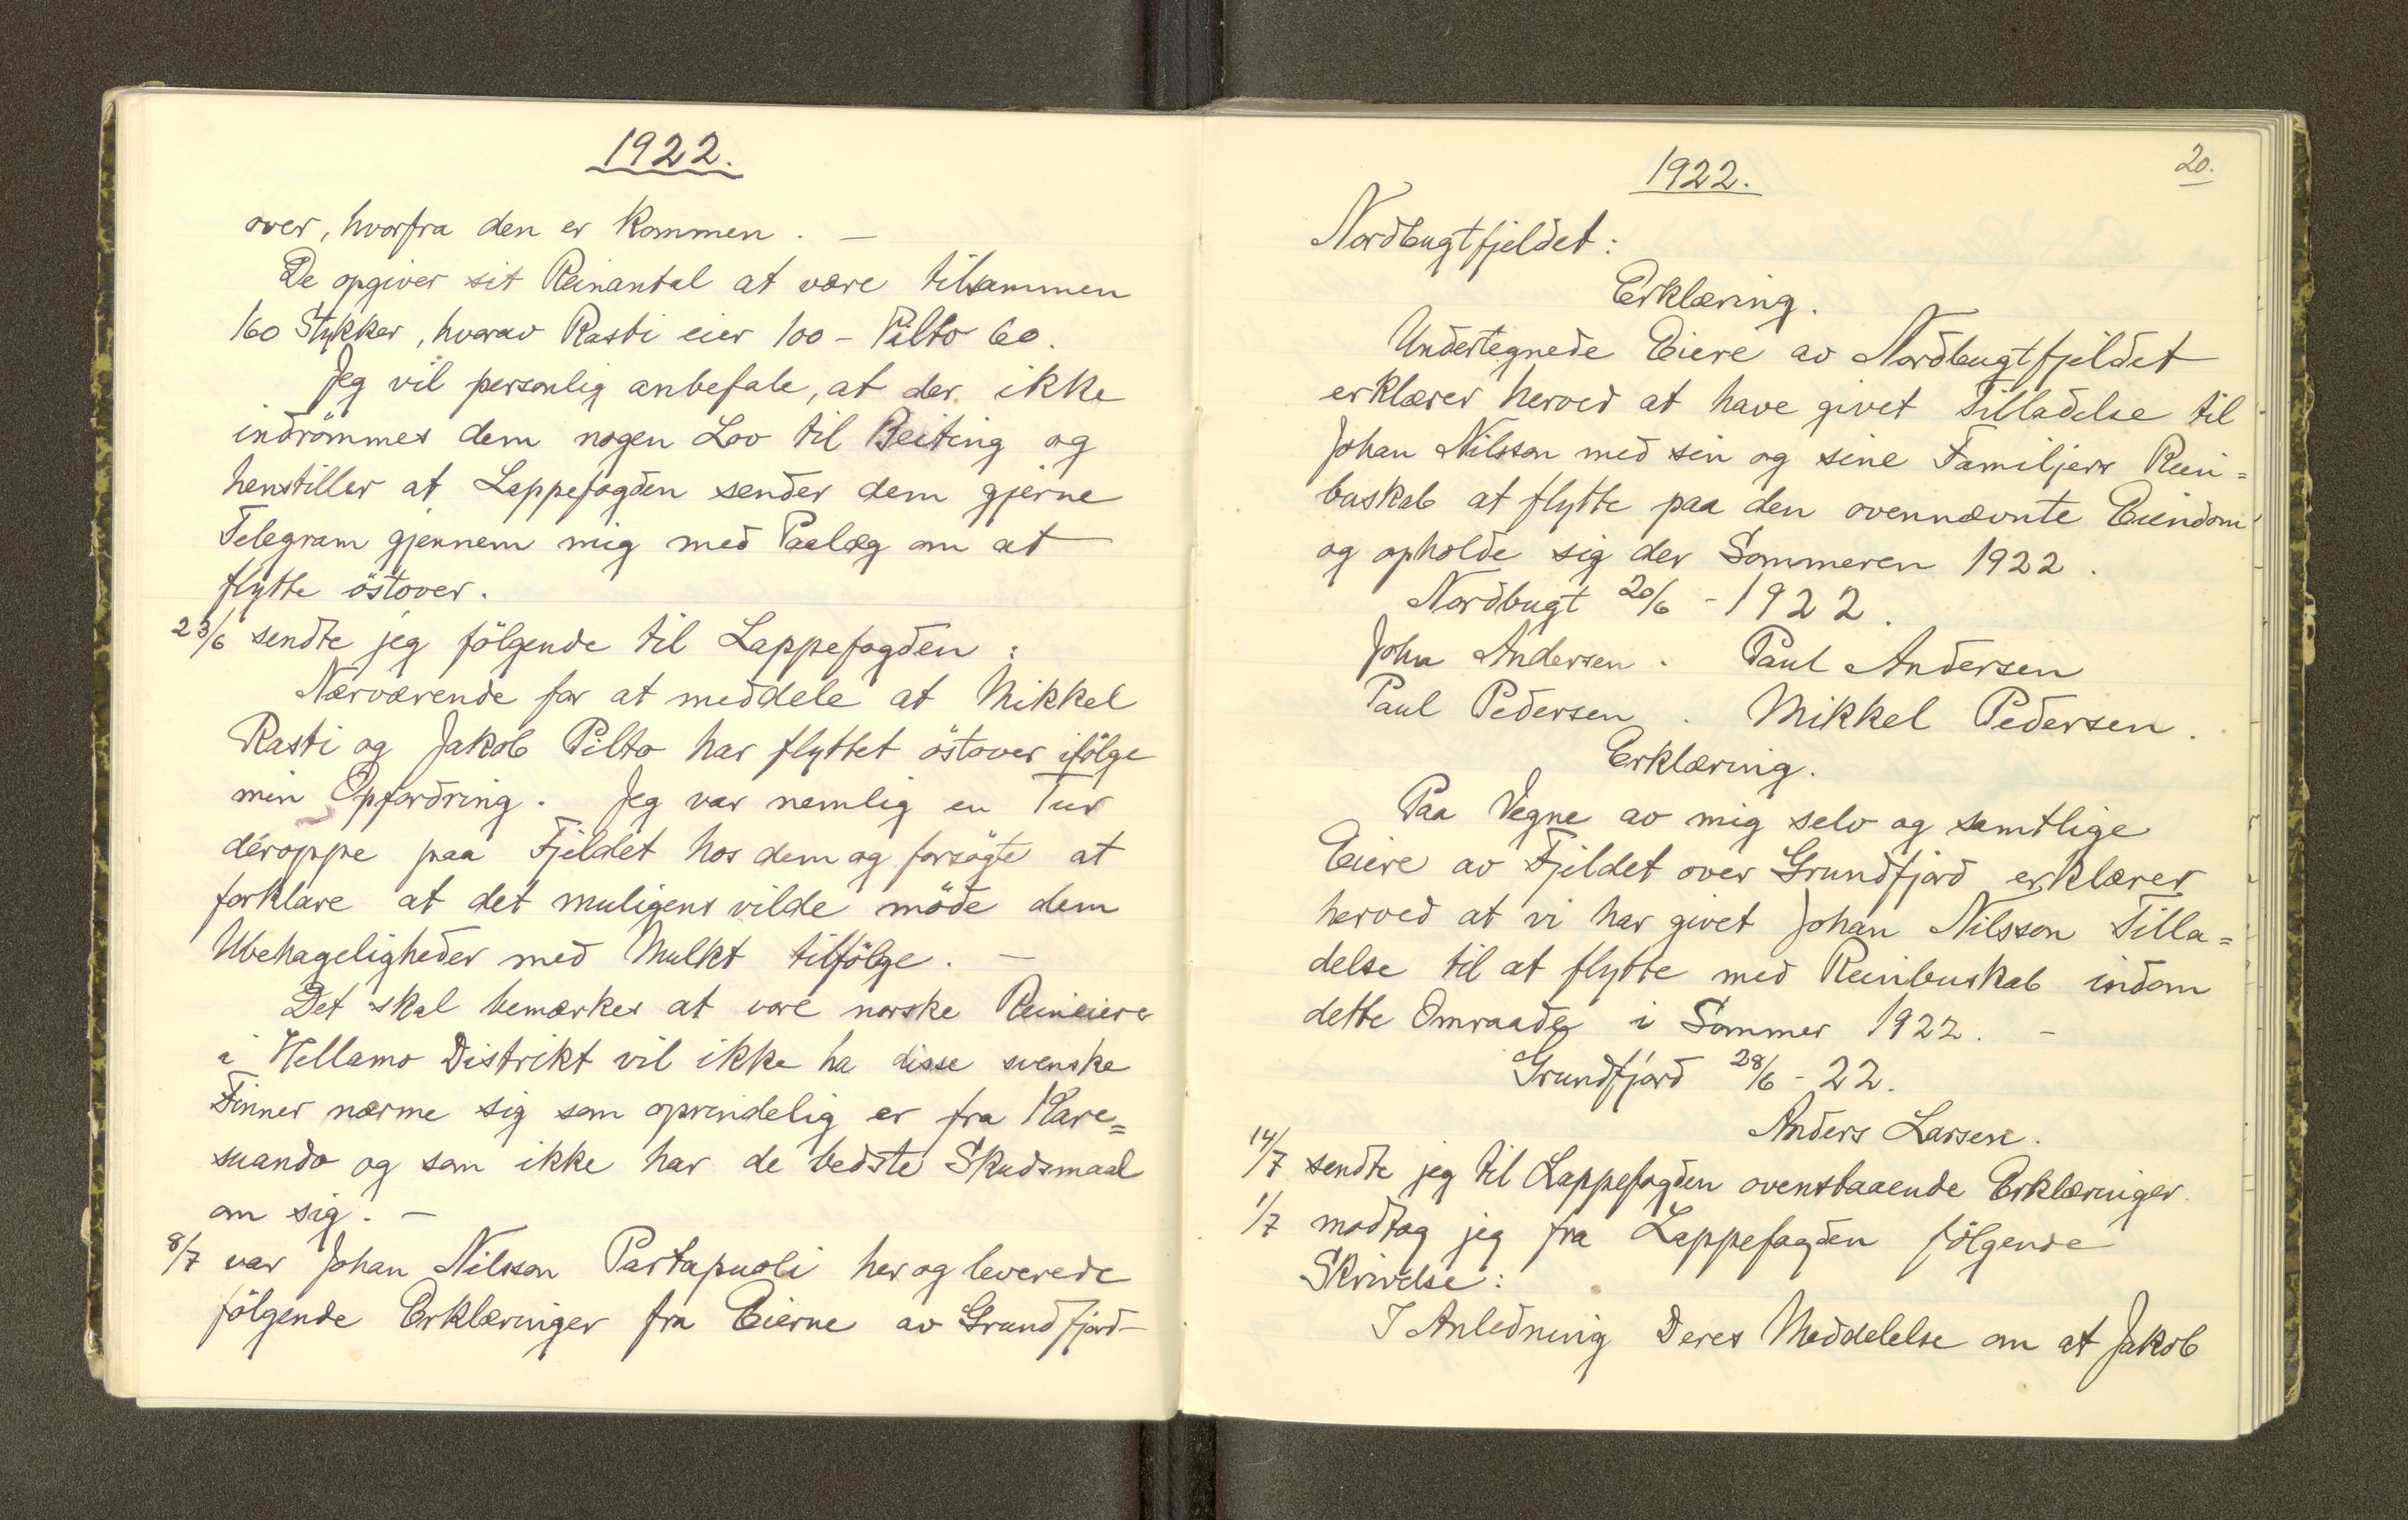 1922.
over, hvorfra den er kommen. —
De opgiver sit Reinantal at være tilsammen
160 Stykker, hvorav Rasti eier 100 - Pilto 60.
Jeg vil personlig anbefale, at der ikke
indrömmes dem nogen Lov til Beiting og
henstiller at Lappefogden sender dem gjerne
Telegram gjennem mig med Paalæg om at
flytte östover.
23/6 sendte jeg fölgende til Lappefogden:
Nærværende for at meddele at Mikkel
Rasti og Jakob Pilto har flyttet östover ifölge
min Opfordring. Jeg var nemlig en Tur
déroppe paa Fjeldet hos dem og forsögte at
forklare at det muligens vilde möde dem
Ubehageligheder med Mulkt tilfölge. —
Det skal bemærkes at vore norske Reineiere
i Hellamo Distrikt vil ikke ha disse svenske
Finner nærme sig som oprindelig er fra Kare=
suando og som ikke har de bedste Skudsmaal
om sig. —
8/7 var Johan Nilsson Partapuoli her og leverede
fölgende Erklæringer fra Eierne av Grundfjord-
20.
1922.
Nordbugtfjeldet:
Erklæring.
Undertegnede Eiere av Nordbugtfjeldet
erklærer herved at have givet Tilladelse til
Johan Nilsson med sin og sine Familjers Rein=
buskab at flytte paa den ovennævnte Eiendom
og opholde sig der Sommeren 1922.
Nordbugt 20/6 - 1922.
John Andersen. Paul Andersen
Paul Pedersen. Mikkel Pedersen.
Erklæring.
Paa Vegne av mig selv og samtlige
Eiere av Fjeldet over Grundfjord erklærer
herved at vi har givet Johan Nilsson Tilla=
delse til at flytte med Reinbuskab indom
dette Omraade i Sommer 1922. —
Grundfjord 28/6 - 22.
Anders Larsen.
14/7 sendte jeg til Lappefogden ovenstaaende Erklæringer.
1/7 modtog jeg fra Lappefogden fölgende
Skrivelse:
I Anledning Deres Meddelelse om at Jakob